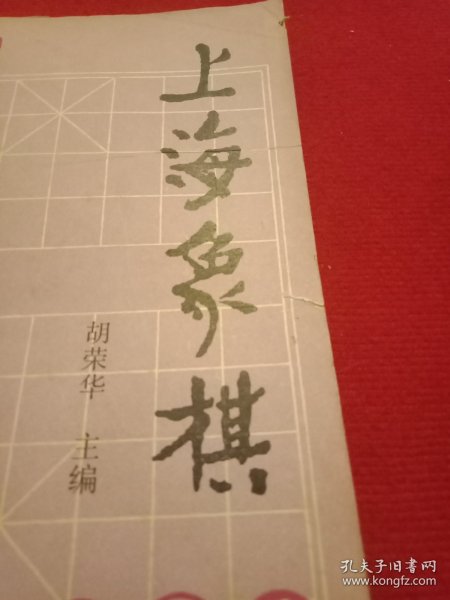 上海象棋
胡荣华 主编
孔夫子旧书网
www.kongfz.com